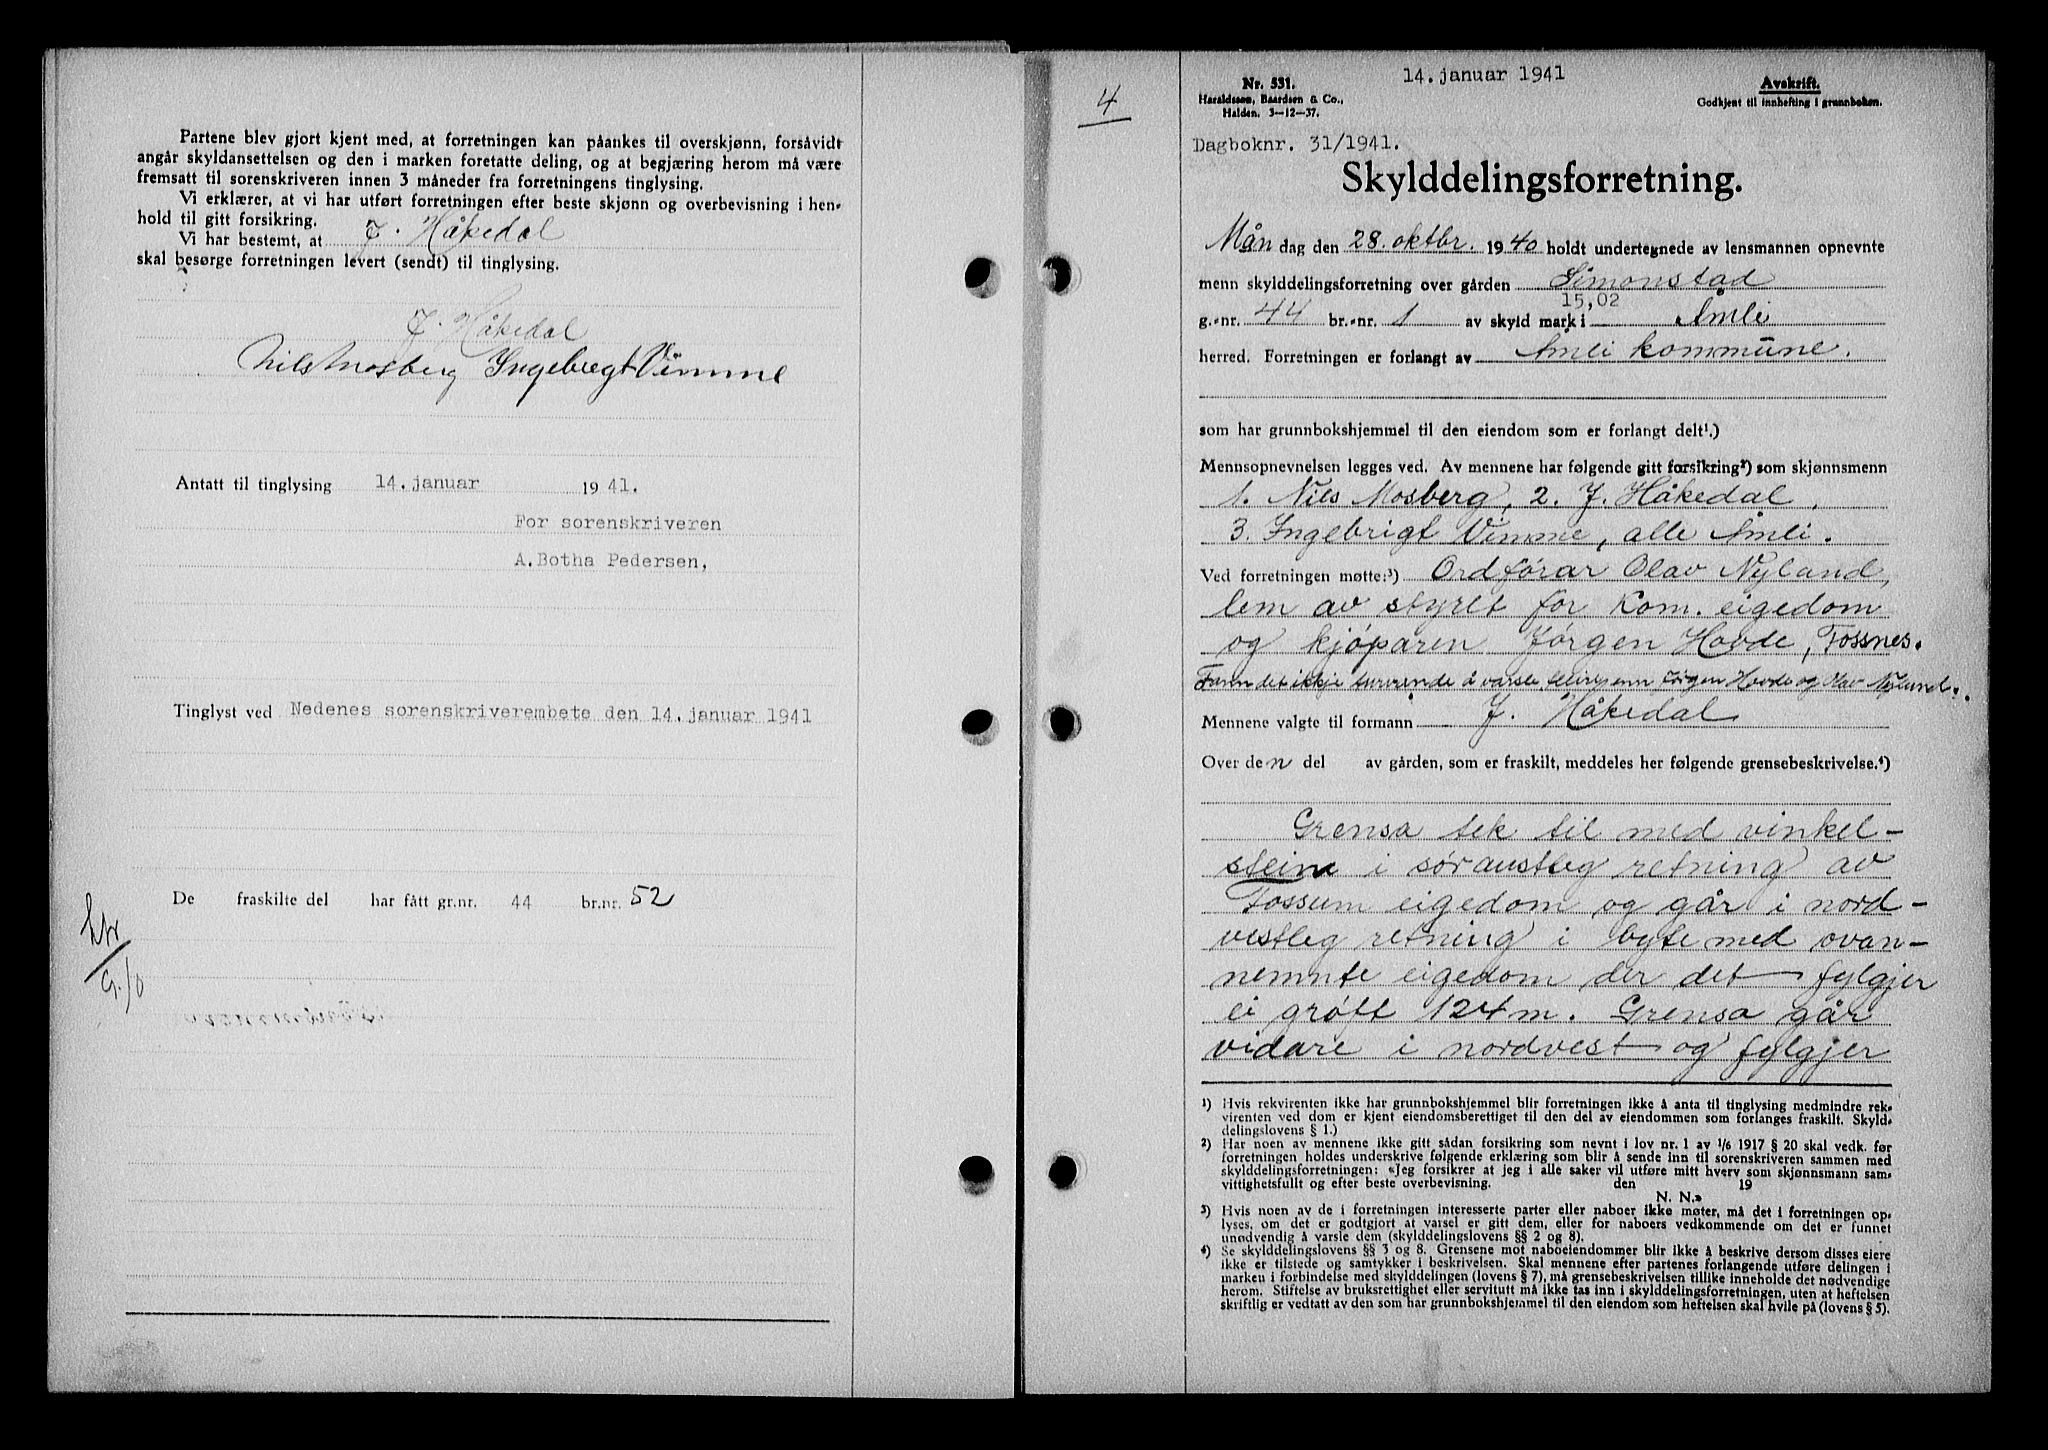 Partene blev gjort kjent med, at forretningen kan påankes til overskjønn, forsåvidt
angår skyldansettelsen og den i marken foretatte deling, og at begjæring herom må være
fremsatt til sorenskriveren innen 3 måneder fra forretningens tinglysing.
Vi erklærer, at vi har utført forretningen efter beste skjønn og overbevisning i hen-
hold til gitt forsikring.
Vi har bestemt, at J. Håkedal
skal besørge forretningen levert (sendt) til tinglysing.
J. Håkedal
Nils Mosberg Ingebregt Vimme
Antatt til tinglysing 14. januar 1941.
For sorenskriveren
A. Botha Pedersen,
Tinglyst ved Nedenes sorenskriverembete den 14. januar 1941
De fraskilte del har fått gr.nr. 44 br.nr. 52
4
14. januar 1941
Nr. 531.
Haraldssen, Baardsen & Co.,
Halden. 3-12-37.
Avskrift.
Godkjent til innhefting i grunnboken.
Dagboknr. 31/1941.
Skylddelingsforretning.
Mån dag den 28. oktbr. 1940 holdt undertegnede av lensmannen opnevnte
menn skylddelingsforretning over gården Simonstad
g.-nr. 44 br.-nr. 1 av skyld mark 15,02 i Åmli
herred. Forretningen er forlangt av Åmli kommune.
som har grunnbokshjemmel til den eiendom som er forlangt delt¹.)
Mennsopnevnelsen legges ved. Av mennene har følgende gitt forsikring²) som skjønnsmenn
1. Nils Mosberg, 2. J. Håkedal,
3. Ingebrigt Vimme, alle Åmli.
Ved forretningen møtte:³) Ordførar Olav Nyland,
lem av styret for kom. eigedom
og kjøparen Jørgen Hovde, Fossnes.
Fann det ikkje turvande å varsle fleire enn Jørgen Hovde og Olav Nyland.
Mennene valgte til formann J. Håkedal
Over den del av gården, som er fraskilt, meddeles her følgende grensebeskrivelse.⁴)
Grensa tek til med vinkel-
stein i søraustleg retning av
Fossum eigedom og går i nord-
vestleg retning i byte med ovan-
nemnte eigedom der det fylgjer
ei grøft 124 m. Grensa går
vidare i nordvest og fylgjer
¹) Hvis rekvirenten ikke har grunnbokshjemmel blir forretningen ikke å anta til tinglysing medmindre rek-
virenten ved dom er kjent eiendomsberettiget til den del av eiendommen som forlanges fraskilt. Skyld-
delingslovens § 1.)
²) Har noen av mennene ikke gitt sådan forsikring som nevnt i lov nr. 1 av 1/6 1917 § 20 skal vedk. før
forretningen holdes underskrive følgende erklæring som blir å sende inn til sorenskriveren sammen med
skylddelingsforretningen: «Jeg forsikrer at jeg i alle saker vil utføre mitt hverv som skjønnsmann sam-
vittighetsfullt og efter beste overbevisning. den 19
N. N.»
³) Hvis noen av de i forretningen interesserte parter eller naboer ikke møter, må det i forretningen op-
lyses, om det er godtgjort at varsel er gitt dem, eller for naboers vedkommende om det er funnet
unødvendig å varsle dem (skylddelingslovens §§ 2 og 8).
⁴) Se skylddelingslovens §§ 3 og 8. Grensene mot naboeiendommer blir ikke å beskrive dersom disses eiere
ikke er tilstede og samtykker i beskrivelsen. Skal mennene efter partenes forlangende utføre delingen i
marken i forbindelse med skylddelingen (lovens § 7), må grensebeskrivelsen tillike inneholde det nødvendige
herom. Stiftelse av bruksrettighet eller servitutt må ikke tas inn i skylddelingsforretningen, uten at heftelsen
skriftlig er vedtatt av den som har grunnbokshjemmel til den eiendom som heftelsen skal hvile på (lovens § 5).